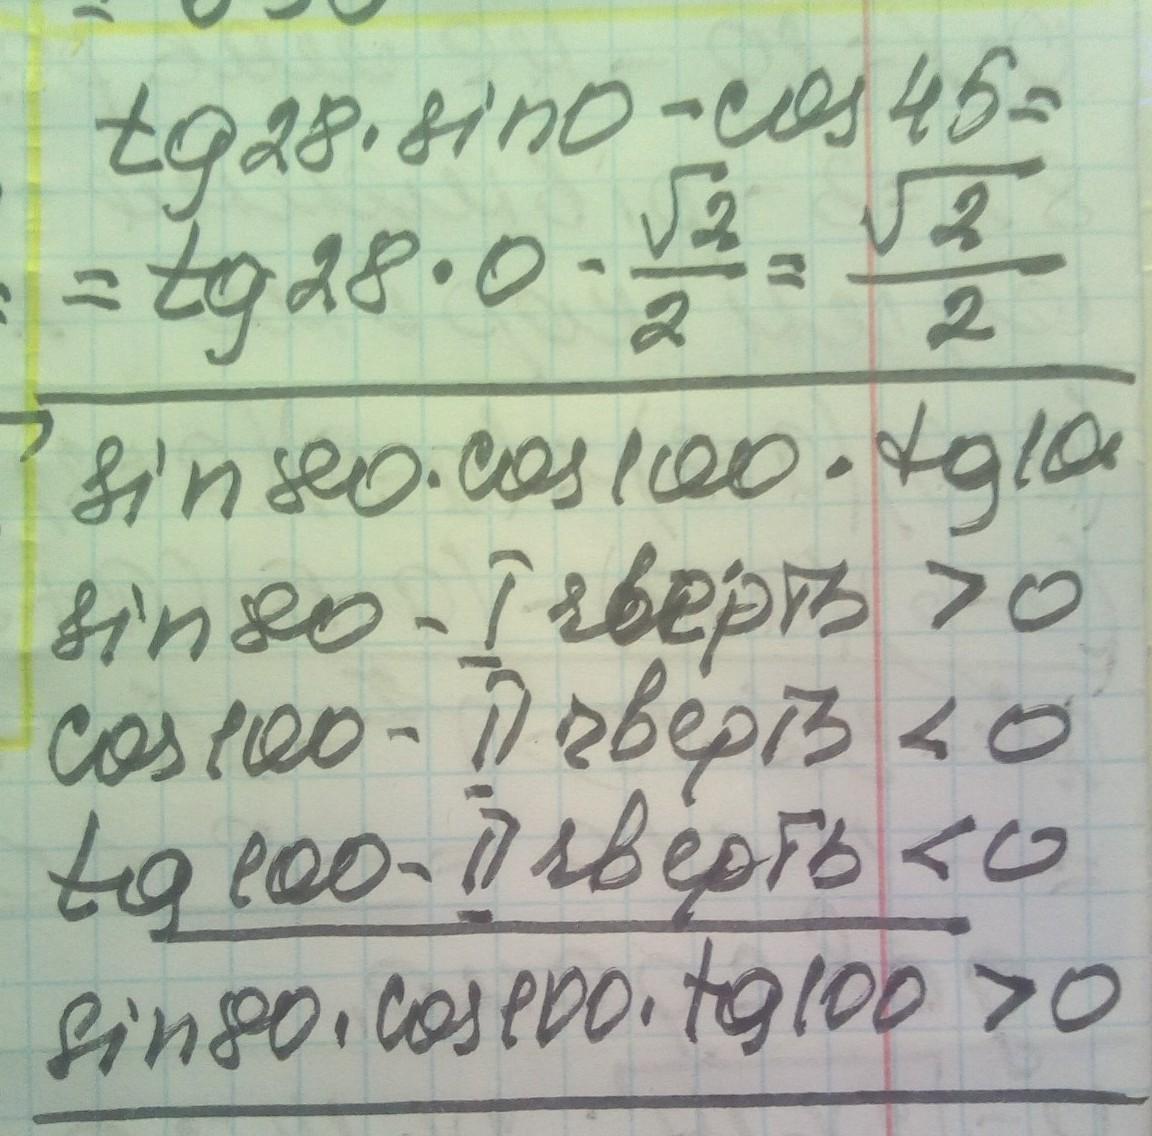 tg28·sin0-cos45=
=tg28·0-√2/2=√2/2
sin80·cos100·tg10
sin80-I чверть>0
cos100-II чверть<0
tg100-II чверть<0
sin80·cos100·tg100>0